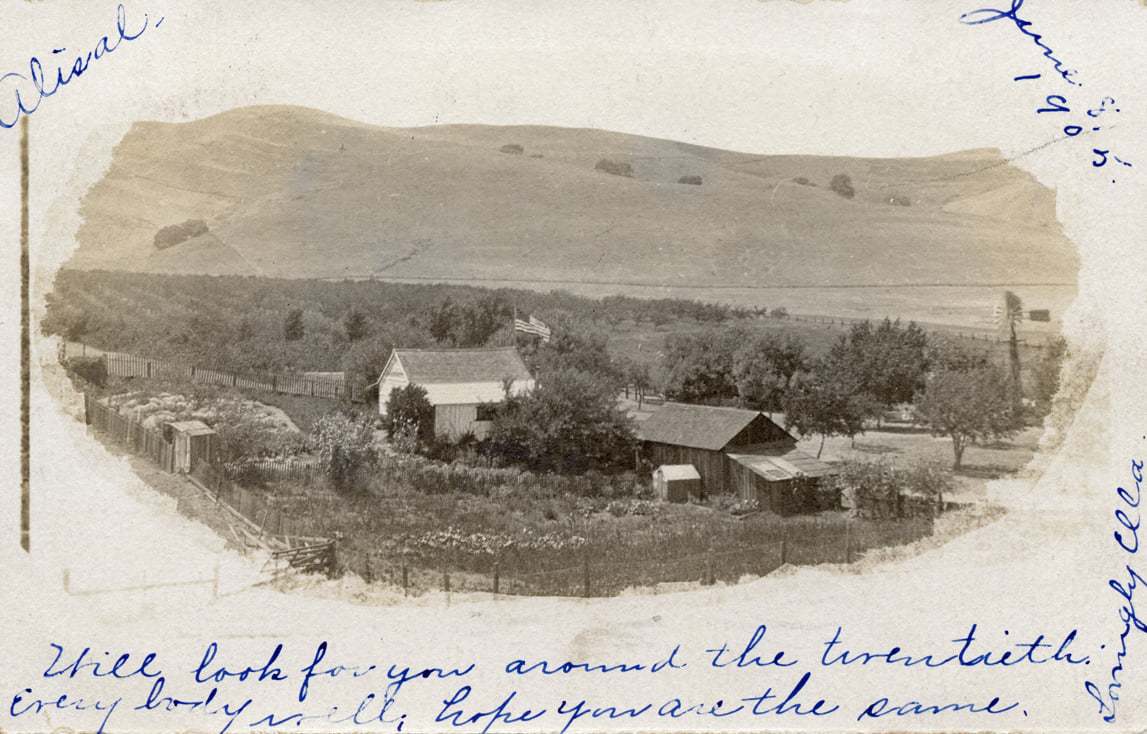 Alisal.
June 8.
1905.
Will look for you around the twentieth.
Every body well, hope you are the same.
Lovingly Ella